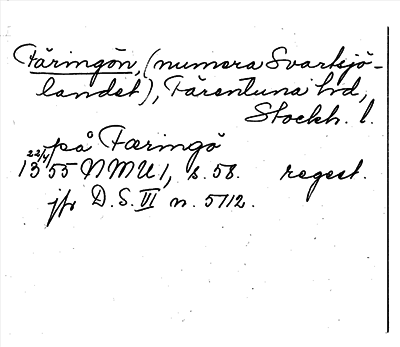 Färingön, (numera Svartsjö-
landet), Färentuna hd,
Stockh. l.
på Færingö
22/4
1355 NMU 1, s. 58. regest.
jfr D.S. VI n. 5712.